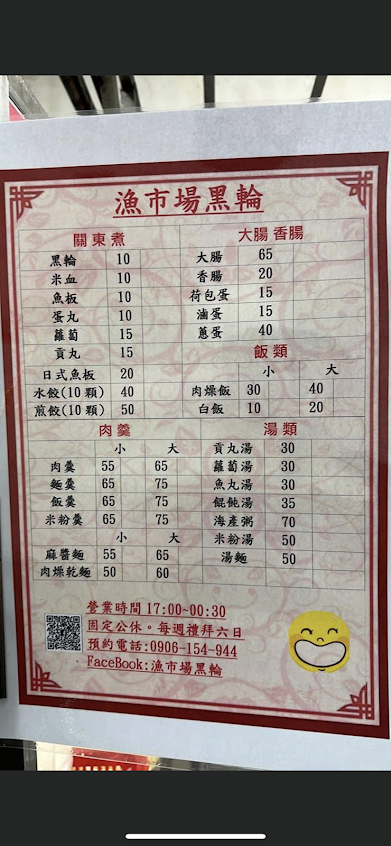 漁市場黑輪
關東煮
黑輪 10
米血 10
魚板 10
蛋丸 10
蘿蔔 15
貢丸 15
日式魚板 20
水餃(10顆) 40
煎餃(10顆) 50
大腸香腸
大腸 65
香腸 20
荷包蛋 15
滷蛋 15
蔥蛋 40
飯類
小 大
肉燥飯 30 40
白飯 10 20
肉羹
小 大
肉羹 55 65
麵羹 65 75
飯羹 65 75
米粉羹 65 75
小 大
麻醬麵 55 65
肉燥乾麵 50 60
湯類
貢丸湯 30
蘿蔔湯 30
魚丸湯 30
餛飩湯 35
海產粥 70
米粉湯 50
湯麵 50
營業時間17:00~00:30
固定公休。每週禮拜六日
預約電話:0906-154-944
FaceBook:漁市場黑輪